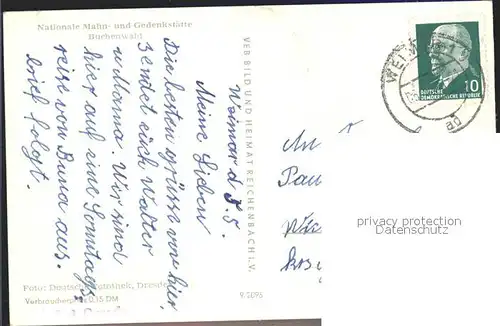 Nationale Mahn- und Gedenkstätte
Buchenwald
Weimar d. 3.5.
Meine Lieben
Die besten Grüsse von hier,
sendet euch Walter
u Mama. Wir sind
hier auf eine Sonntags-
reise von Buna aus.
Brief folgt.
VEB BILD UND HEIMAT REICHENBACH I. V.
Foto: Deutsche Fotothek, Dresden
Verbraucherpreis 0,15 DM
WEIM
ad
10
DEUTSCHE
DEMOKRATISCHE REPUBLIK
An
Pau
privacy protection
Datenschutz